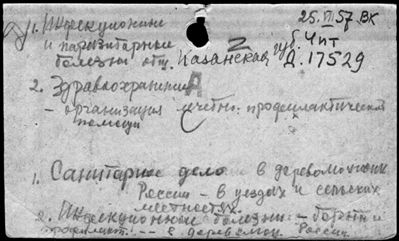 1. Инфекционные 25.VI 57. ВК
и паразитарные Казанская губ. Чит
болезни общ. Д. 17529
2. Здравоохранение
- организация лечебно-профилактической
помощи
1. Санитарное дело в
России - в уездах и сельских
местностях.
2. Инфекционные болезни - борьба и
России